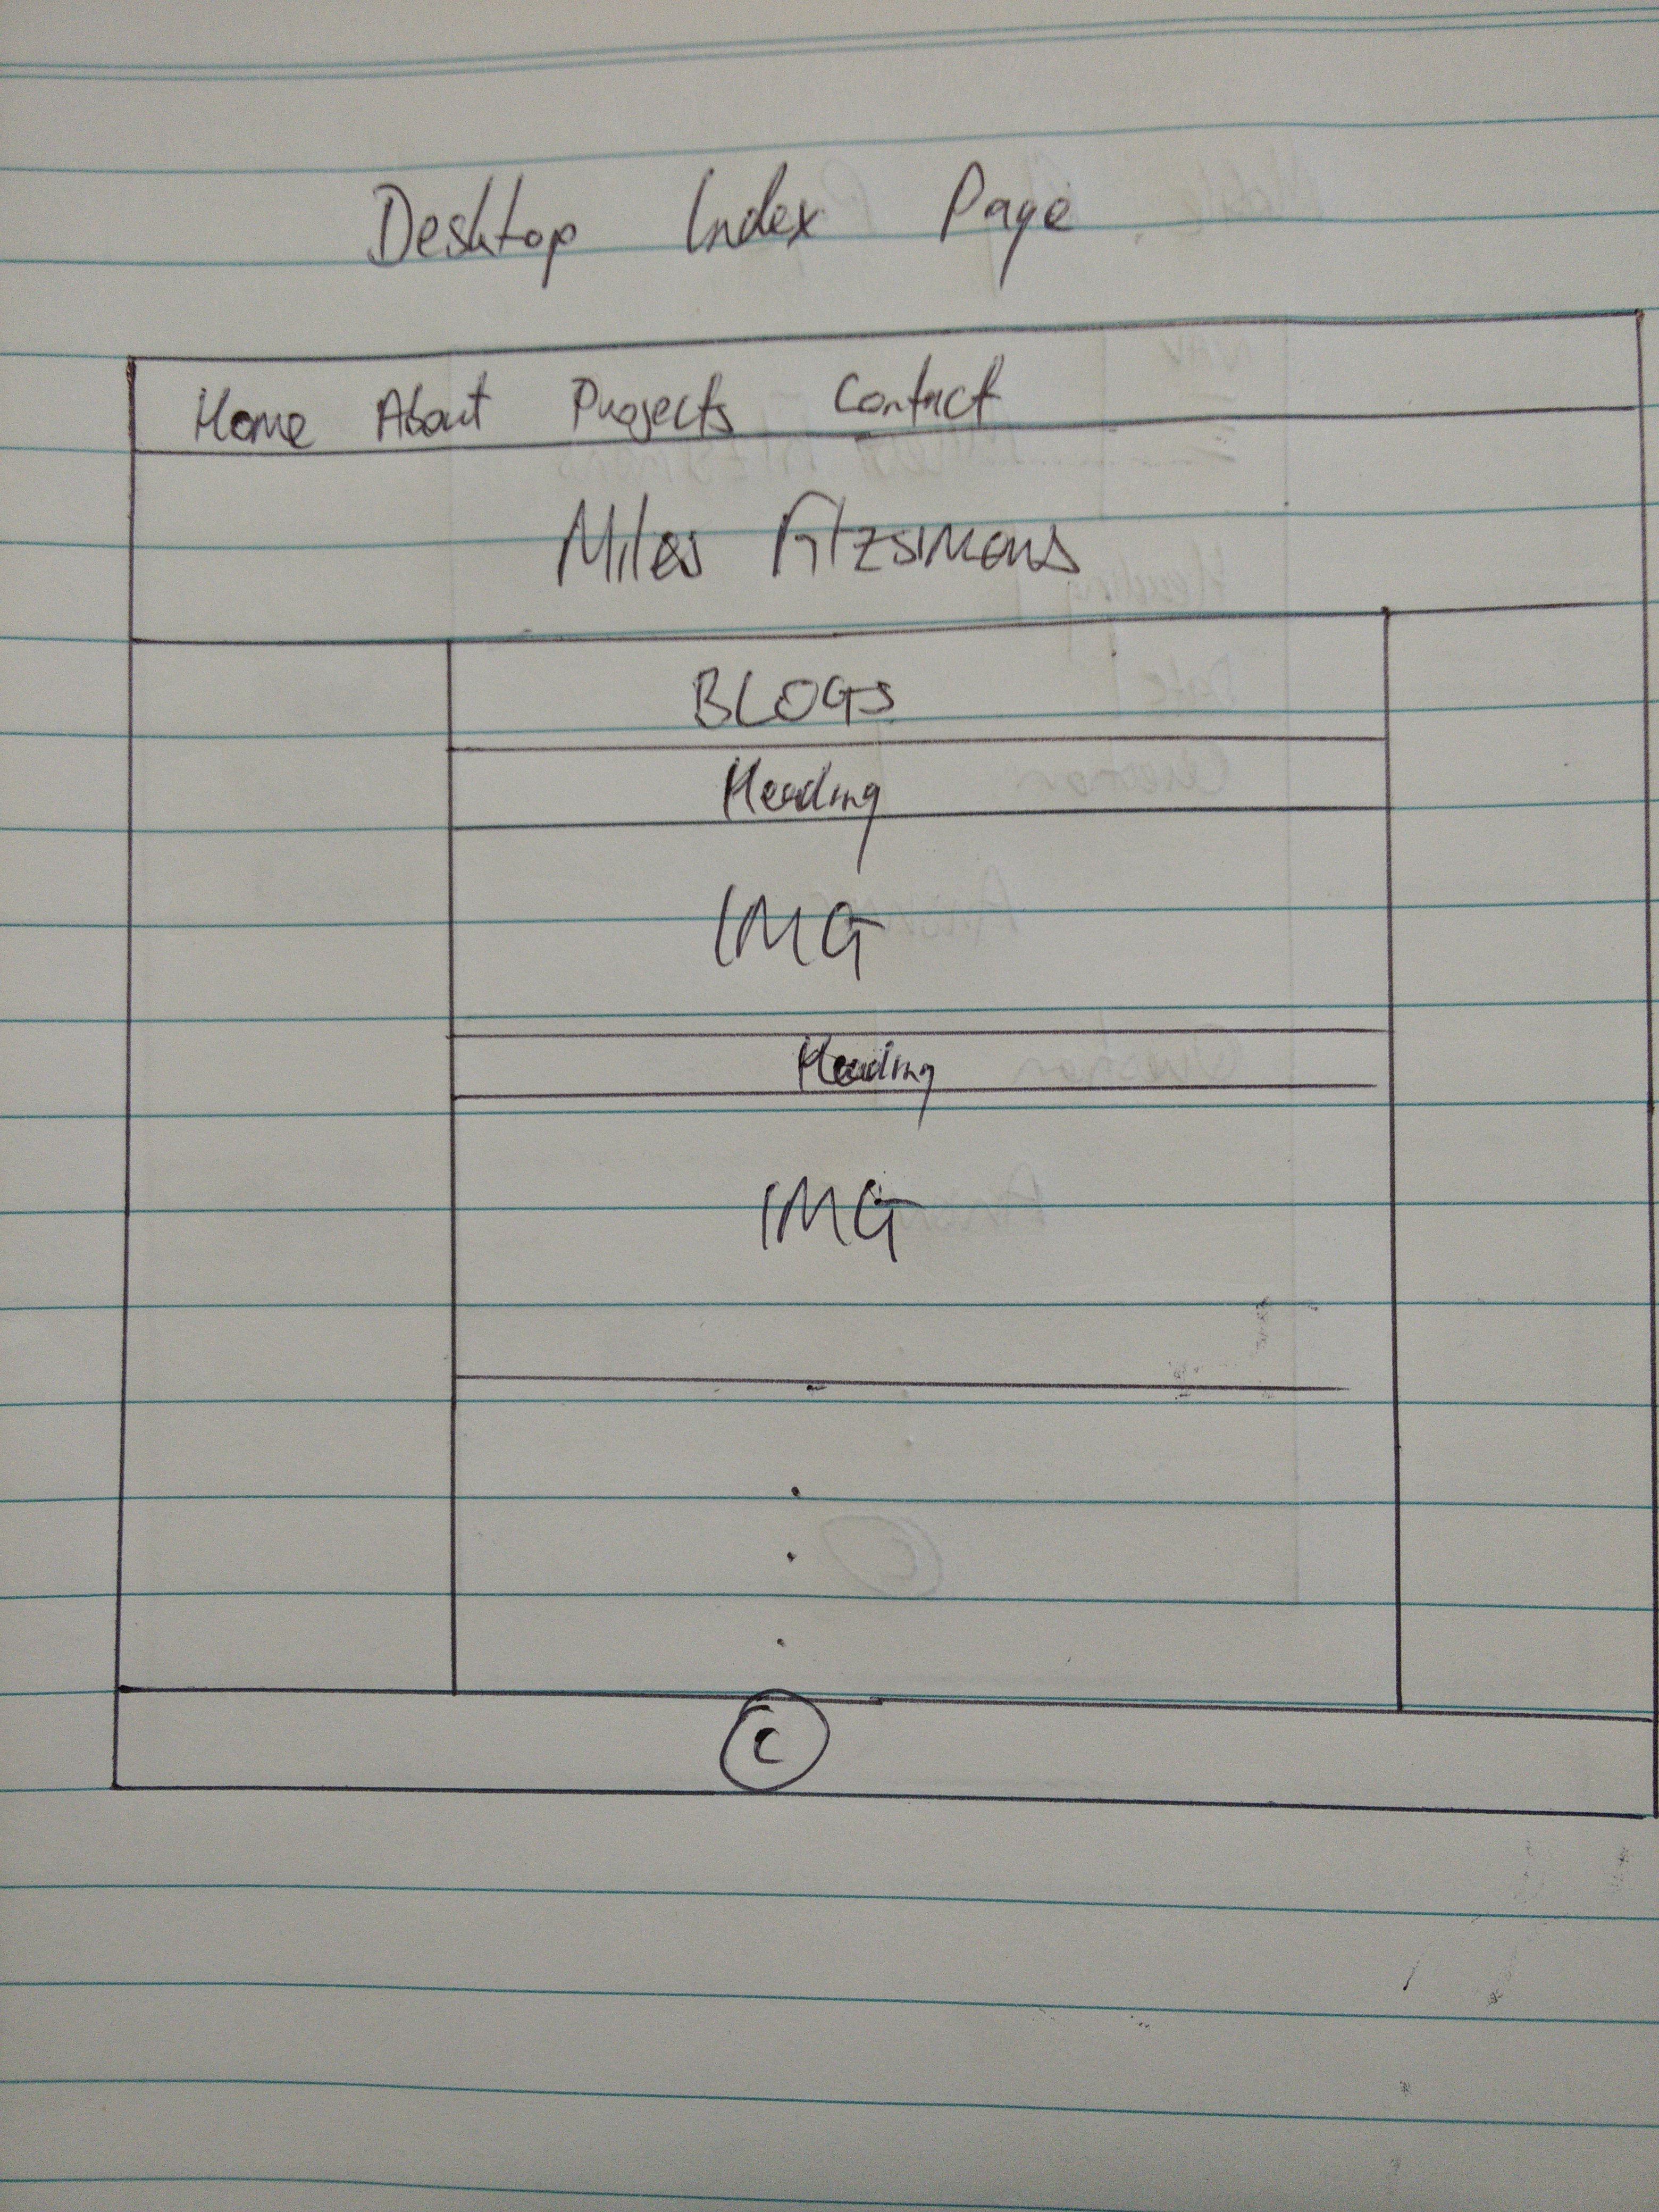 Desktop Index Page
Home About Projects Contact
Miles Fitzsimons
BLOGS
Heading
IMG
Heading
IMG
©